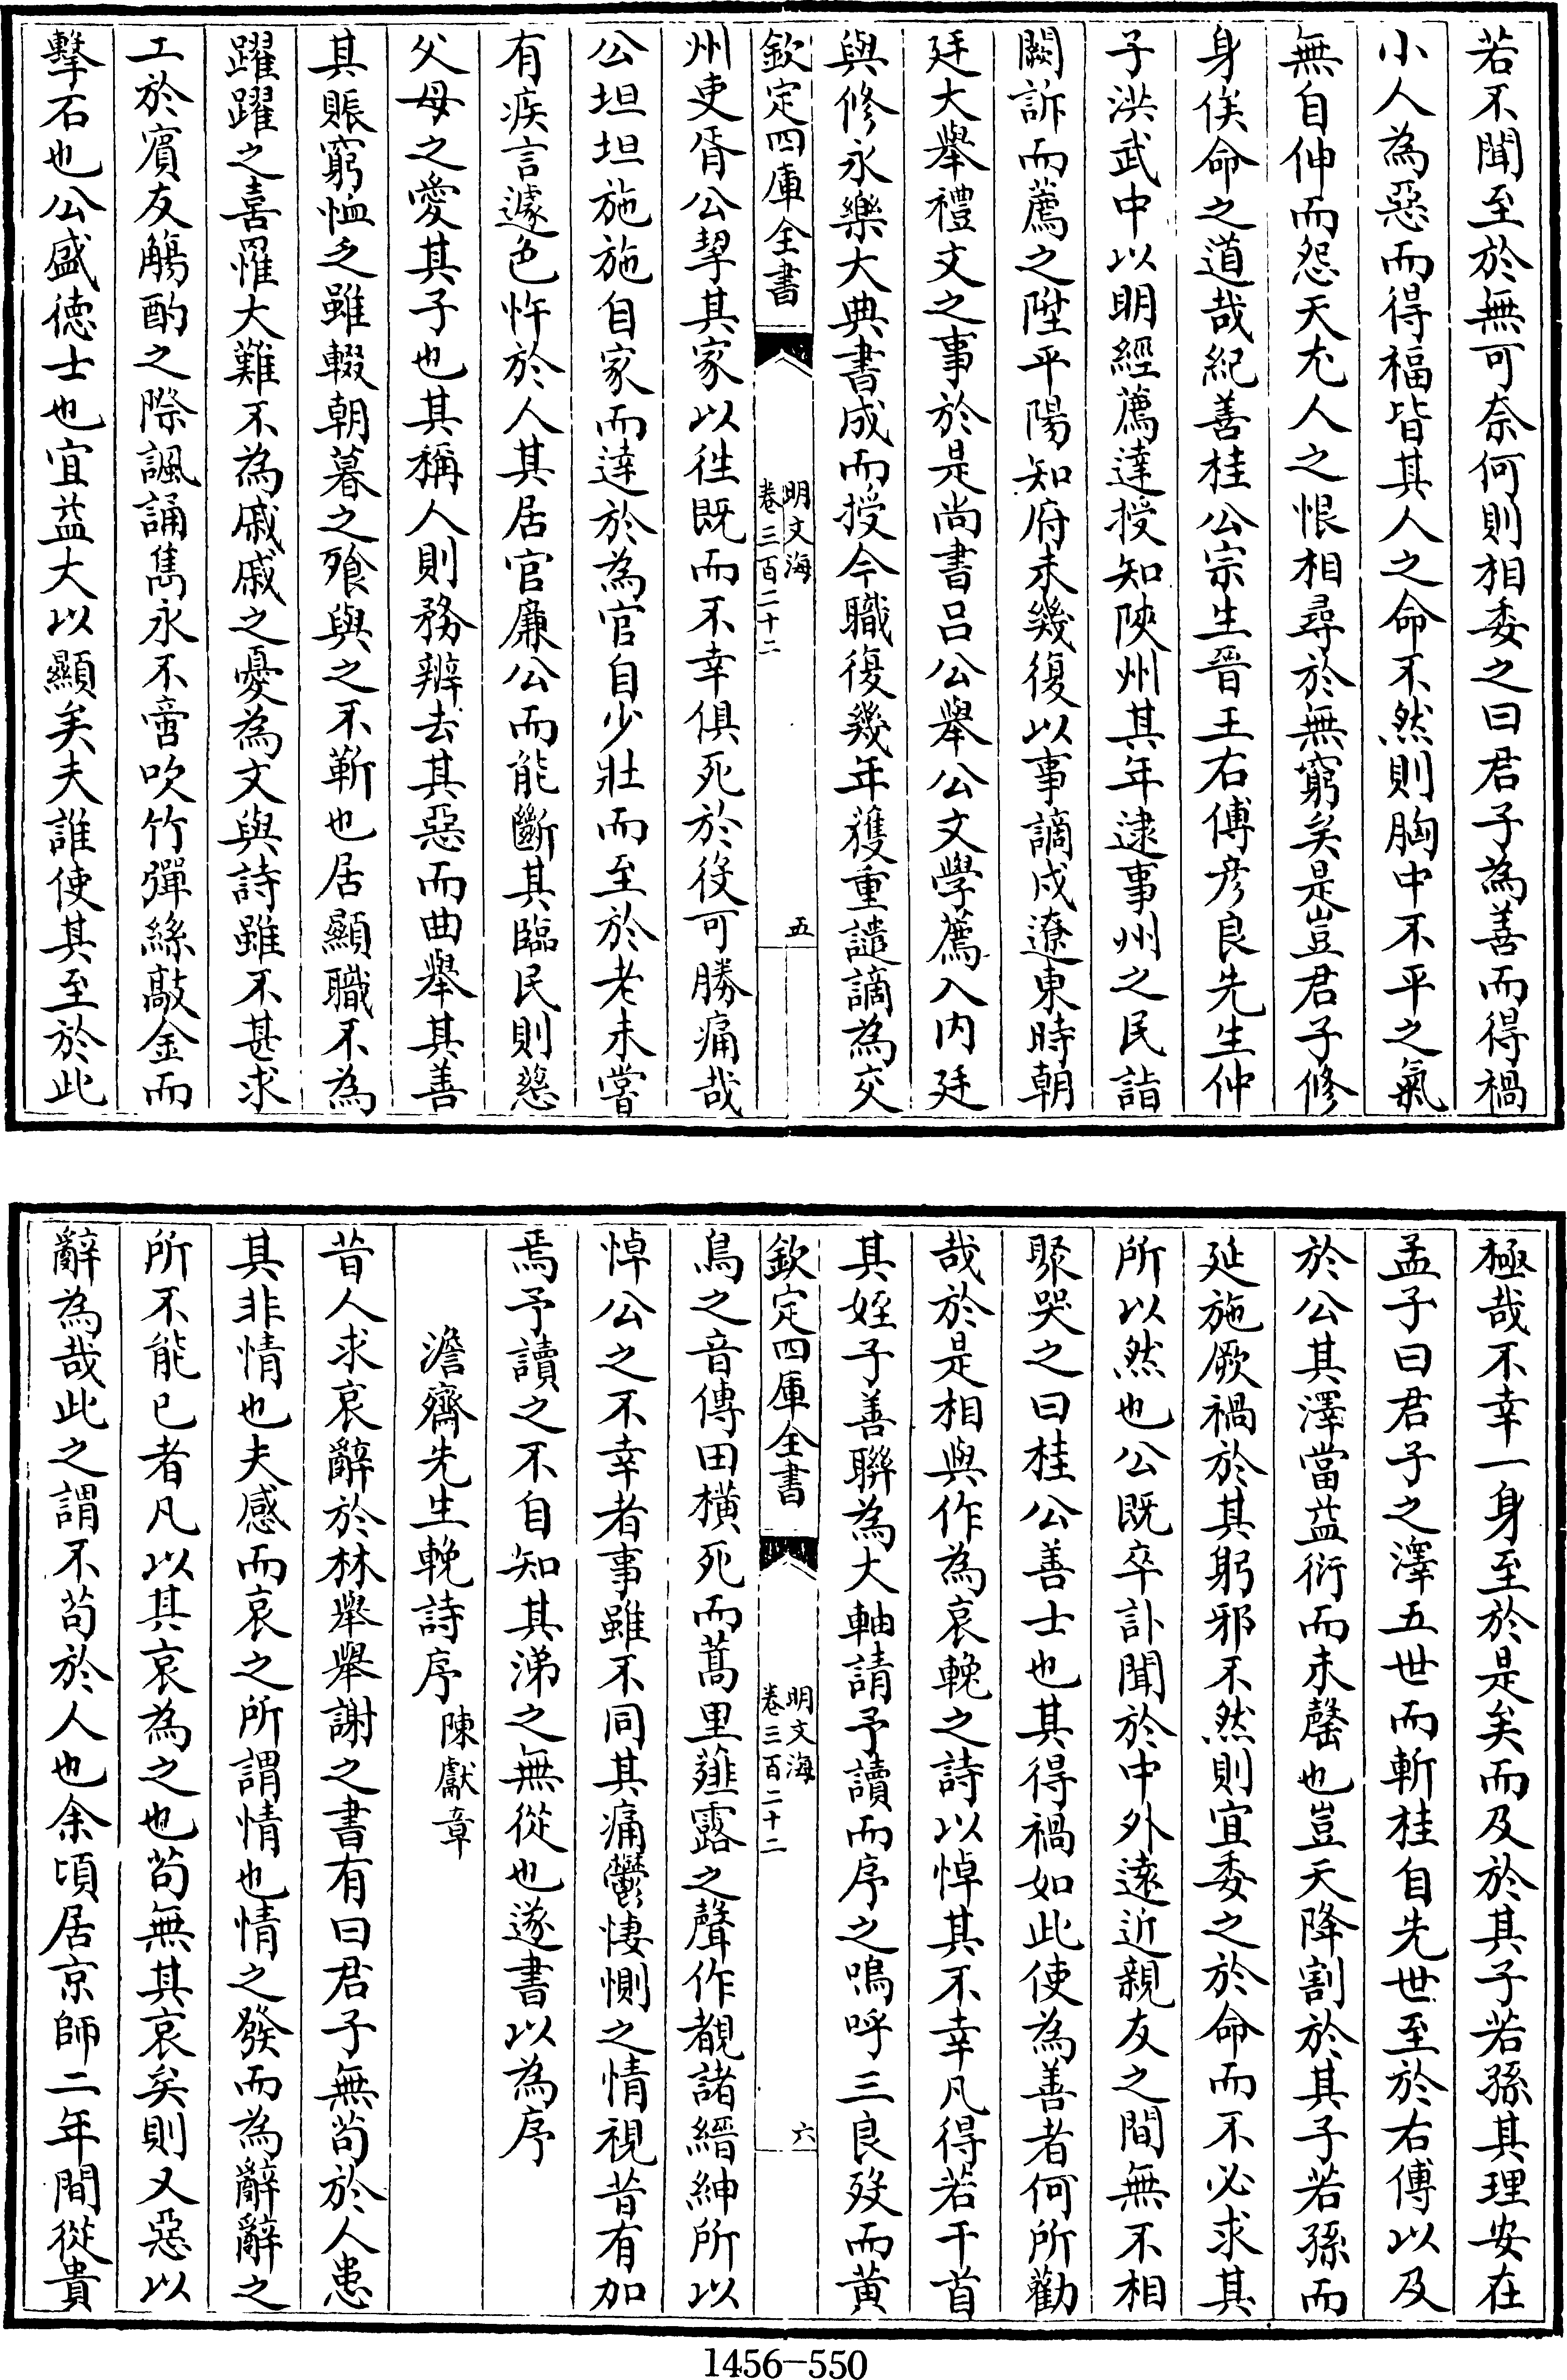 若不聞至於無可奈何則相委之曰君子為善而得禍
小人為惡而得福皆其人之命不然則胸中不平之氣
無自伸而怨天尤人之恨相尋於無窮矣是豈君子修
身俟命之道哉紀善桂公宗生晉王右傅彦良先生仲
子洪武中以明經薦達授知陜州其年逮事州之民詣
闕訴而薦之陞平陽知府未幾復以事謫戍遼東時朝
廷大舉禮文之事於是尚書吕公舉公文學薦入内廷
與修永樂大典書成而授今職復幾年獲重譴謫為交
欽定四庫全書
明文海
卷三百二十二
五
州吏胥公挈其家以徃既而不幸俱死於役可勝痛哉
公坦坦施施自家而達於為官自少壯而至於老未嘗
有疾言遽色忤於人其居官廉公而能斷其臨民則慈
父母之愛其子也其稱人則務辨去其惡而曲舉其善
其賬窮恤乏雖輟朝暮之飱與之不靳也居顯職不為
躍躍之喜罹大難不為戚戚之憂為文與詩雖不甚求
工於賓友觴酌之際諷誦雋永不啻吹竹彈絲敲金而
擊石也公盛徳士也宜益大以顯矣夫誰使其至於此
極哉不幸一身至於是矣而及於其子若孫其理安在
孟子曰君子之澤五世而斬桂自先世至於右傅以及
於公其澤當益衍而未罄也豈天降割於其子若孫而
延施厥禍於其躬邪不然則宜委之於命而不必求其
所以然也公既卒訃聞於中外遠近親友之間無不相
聚哭之曰桂公善士也其得禍如此使為善者何所勸
哉於是相與作為哀輓之詩以悼其不幸凡得若干首
其姪子善聯為大軸請予讀而序之嗚呼三良殁而黄
欽定四庫全書
明文海
卷三百二十二
六
鳥之音傳田横死而蒿里薤露之聲作覩諸縉紳所以
悼公之不幸者事雖不同其痛鬱悽惻之情視昔有加
焉予讀之不自知其涕之無從也遂書以為序
澹齋先生輓詩序 陳獻章
昔人求哀辭於林舉舉謝之書有曰君子無茍於人患
其非情也夫感而哀之所謂情也情之發而為辭辭之
所不能已者凡以其哀為之也茍無其哀矣則又惡以
辭為哉此之謂不茍於人也余頃居京師二年間從貴
1456-550